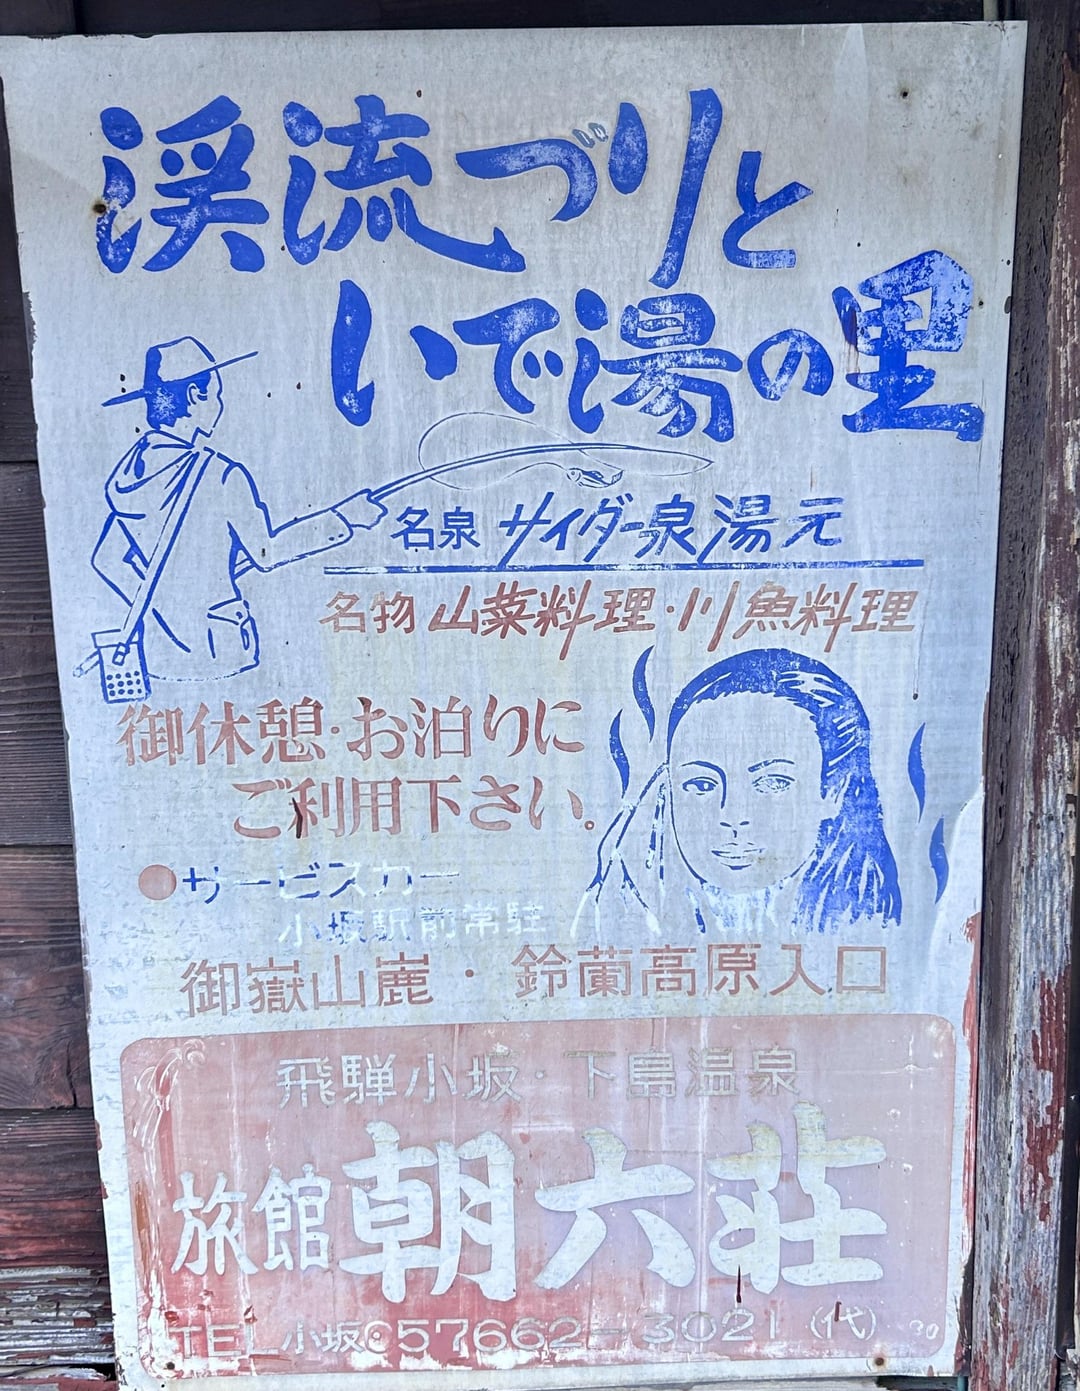 渓流づりと
いで湯の里
名泉 サイダー泉湯元
名物 山菜料理・川魚料理
御休憩・お泊りに
ご利用下さい。
●サービスカー
小坂駅前常駐
御嶽山麓・鈴蘭高原入口
飛騨小坂・下島温泉
旅館 朝六荘
TEL 小坂057662-3021(代)